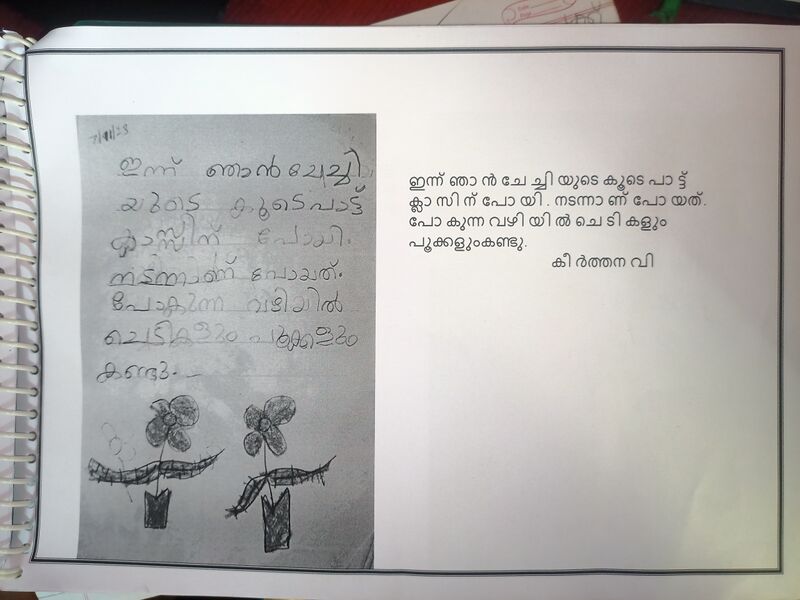 7/11/23
ഇന്ന് ഞാൻ ചേച്ചി
യുടെ കൂടെ പാട്ട്
ക്ലാസ്സിന് പോയി.
നടന്നാണ് പോയത്.
പോകുന്ന വഴിയിൽ
ചെടികളും പൂക്കളും
കണ്ടു.
ഇന്ന് ഞാൻ ചേച്ചിയുടെ കൂടെ പാട്ട്
ക്ലാസിന് പോയി. നടന്നാണ് പോയത്.
പോകുന്ന വഴിയിൽ ചെടികളും
പൂക്കളുംകണ്ടു.
കീർത്തന വി